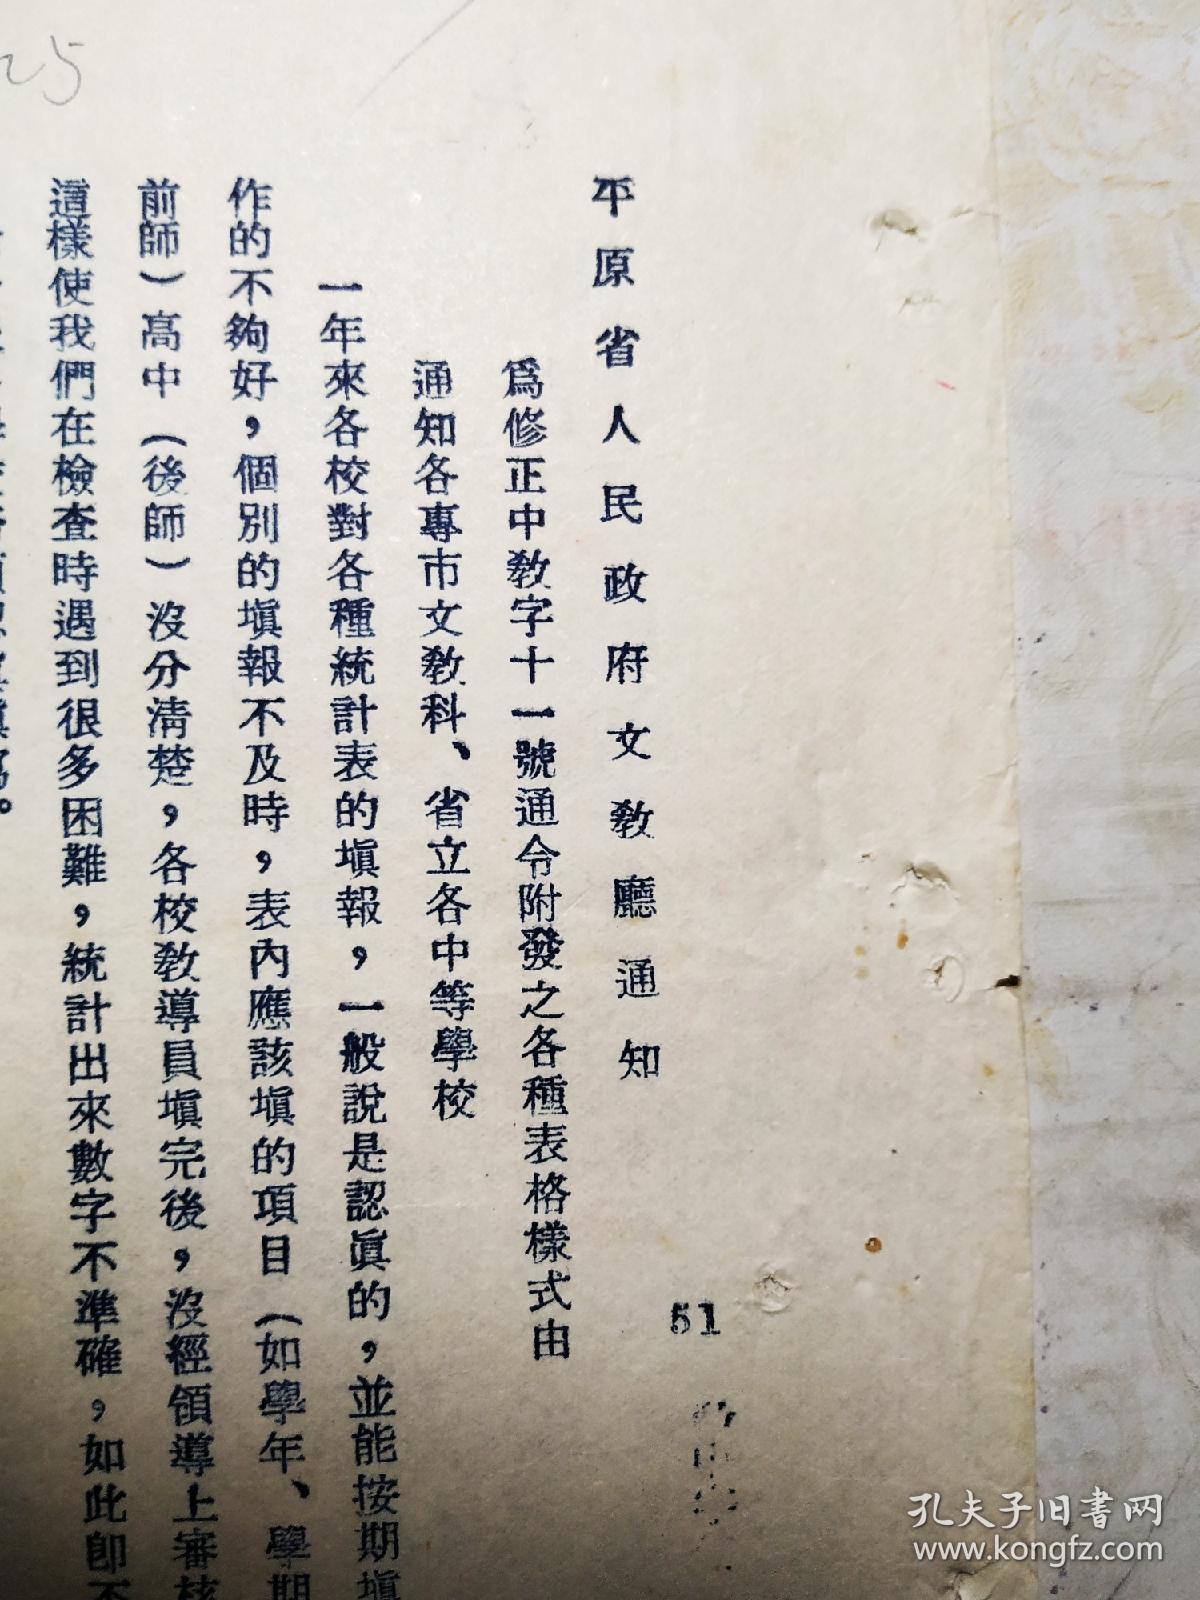 平原省人民政府文教廳通知
51
爲修正中教字十一號通令附發之各種表格樣式由
通知各專市文教科、省立各中等學校
一年來各校對各種統計表的塡報，一般說是認眞的，並能按期塡
作的不夠好，個別的塡報不及時，表內應該塡的項目（如學年、學期
前師）高中（後師）沒分清楚，各校教導員塡完後，沒經領導上審核
這樣使我們在檢查時遇到很多困難，統計出來數字不準確，如此卽不
25
孔夫子旧书网
www.kongfz.com